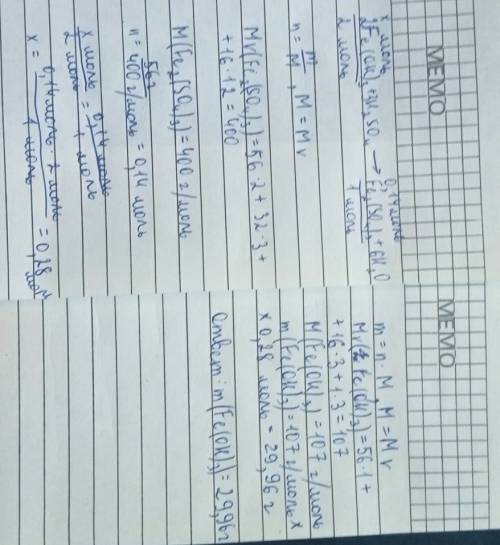 MEMO
x моль 0,14 моль
2Fe(OH)3 + 3H2SO4 → Fe2(SO4)3 + 6H2O
2 моль 1 моль
n = m/M , M = Mr
Mr(Fe2(SO4)3) = 56·2 + 32·3 +
+ 16·12 = 400
M(Fe2(SO4)3) = 400 г/моль
n = 56г/400 г/моль = 0,14 моль
x моль/2 моль = 0,14 моль/1 моль
x = 0,14 моль · 2 моль/1 моль = 0,28 моль
MEMO
m = n · M, M = Mr
Mr(Fe(OH)3) = 56·1 +
+ 16·3 + 1·3 = 107
M(Fe(OH)3) = 107 г/моль
m(Fe(OH)3) = 107 г/моль x
x 0,28 моль = 29,96 г
Ответ: m(Fe(OH)3) = 29,96г